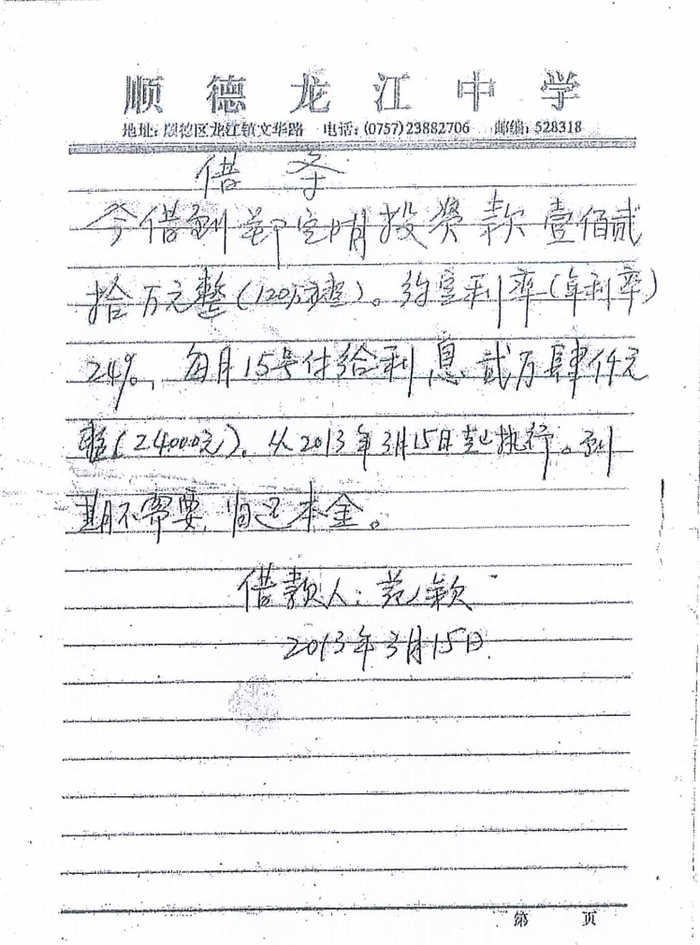 顺德龙江中学
地址：顺德区龙江镇文华路 电话：(0757)23882706 邮编：528318
借条
今借到 定晴投资款壹佰贰
拾万元整(120万元整)。约定利率(年利率)
24%，每月15号付给利息贰万肆仟元
整(24000元)。从2013年3月15日起执行。到
期不需要，归还本金。
借款人：范颖
2013年3月15日
第 页